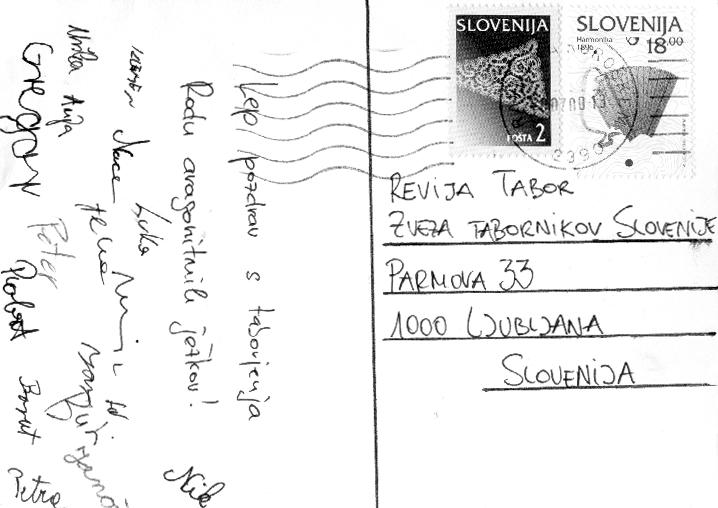 SLOVENIJA
POŠTA 2
SLOVENIJA
Harmonika
1896
18.00
REVIJA TABOR
ZVEZA TABORNIKOV SLOVENIJE
PARMOVA 33
1000 LJUBLJANA
SLOVENIJA
Lep pozdrav s taborjenja
Rodu aragonitnih ježkov!
Nik
Luka
Nace
Anja
Gregor
Peter
Robert
Borut
Petra